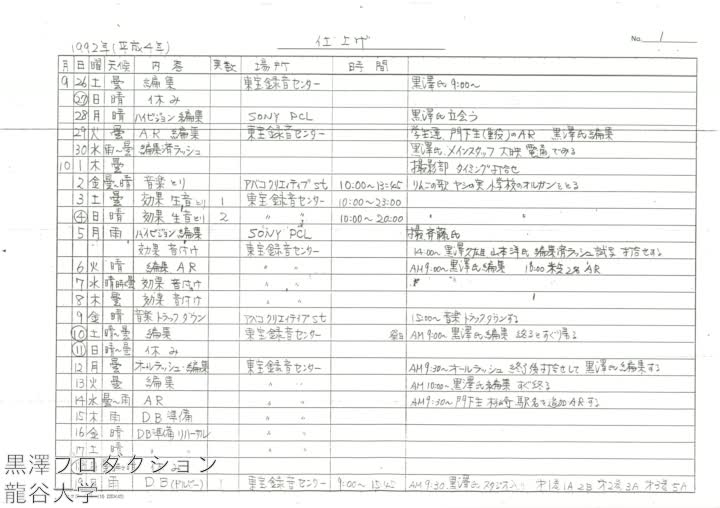 1992年(平成4年) 仕上げ No. 1
月 日 曜 天候 内容 実数 場所 時間
9 26 土 曇 編集 東宝録音センター 黒澤氏 9:00~
27 日 晴 休み
28 月 晴 ハイビジョン編集 SONY PCL 黒澤氏立会う
29 火 曇 AR 編集 東宝録音センター 学生達、門下生(重役)のAR 黒澤氏編集
30 水 雨~曇 編集済ラッシュ 黒澤氏、メインスタッフ 大映 電通でみる
10 1 木 曇 撮影部 タイミング打合せ
2 金 曇~晴 音楽とり アバコクリエイティブst 10:00~13:45 りんごの歌 ヤシの実 小学校のオルガンをとる
3 土 曇 効果 生音とり 1 東宝録音センター 10:00~23:00
4 日 晴 効果 生音とり 2 〃 〃 10:00~20:00
5 月 雨 ハイビジョン編集 SONY PCL 撮斉藤氏
効果 音付け 東宝録音センター 14:00~黒澤久雄 山本洋氏 編集済ラッシュ試写 打合せする
6 火 晴 編集 AR 〃 〃 AM9:00~黒澤氏編集 18:00 AR
7 水 効果 音付け 〃 〃
8 木 曇 効果 音付け 〃 〃
9 金 晴 音楽トラックダウン アバコクリエイティブst 15:00~音楽トラックダウンする
10 土 晴~曇 編集 東宝録音センター AM 9:00~黒澤氏編集 終るとすぐ帰る
11 日 晴~曇 休み
12 月 曇 オールラッシュ・編集 東宝録音センター AM9:30~オールラッシュ 終了后打合せして黒澤氏編集する
13 火 曇 編集 〃 〃 AM 10:00~黒澤氏編集 すぐ終る
14 水 曇~雨 AR 〃 〃 AM9:30~門下生 村崎 駅名を追加ARする
15 木 雨 DB準備 〃 〃
16 金 晴 DB準備リハーサル 〃 〃
17 土 晴 〃 〃 〃
休み
雨 DB(ドルビー) 1 東宝録音センター 9:00~15:45 AM 9:30 黒澤氏スタジオ入り オ1巻1A 2B オ2巻 3A オ3巻 5A
黒澤プロダクション
龍谷大学